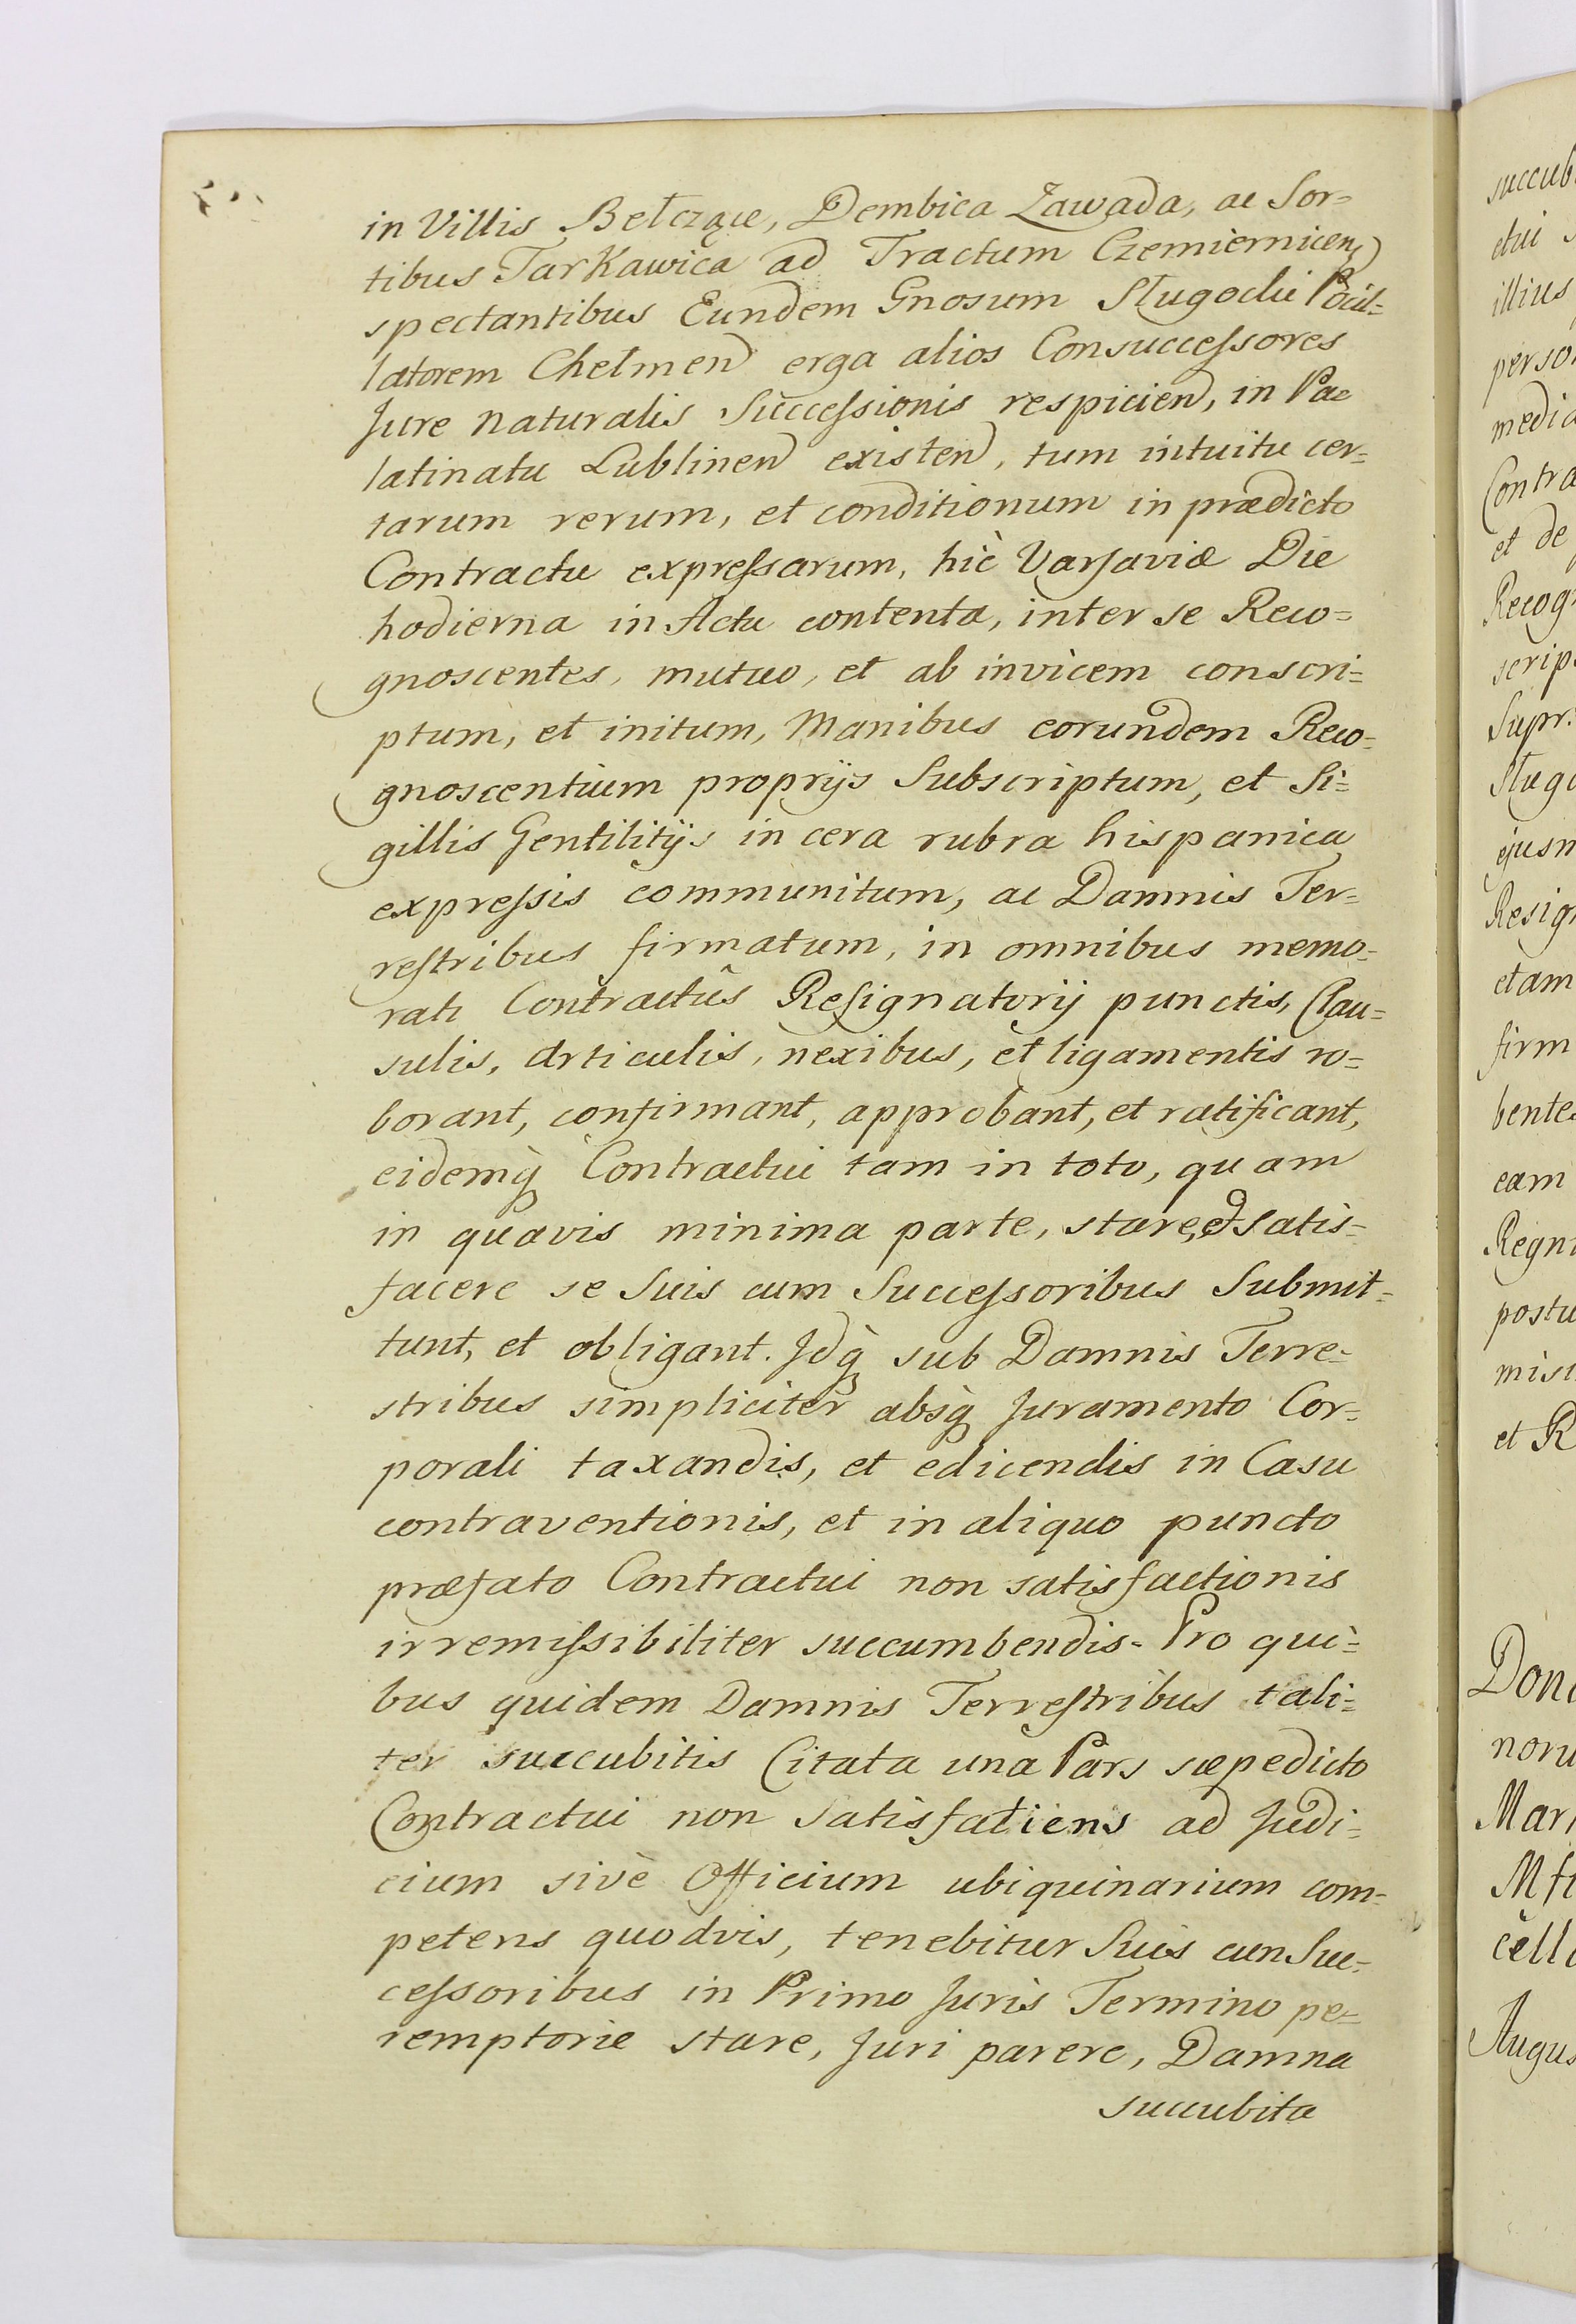 in Villis Bełcząc, Dembica Zawada, ac Sor=
tibus Tarkawica ad Tractum Czemiernicen
spectantibus Eundem Gnosum Sługocki Pocil=
latorem Chełmen erga alios Consuccessores
Jure naturalis Successionis respicien, in Pa=
latinatu Lublinen existen, tum intuitu cer=
tarum rerum, et conditionum in prædicto
Contractu expressarum, hic Varsaviæ Die
hodierna in Actu contenta, inter se Reco=
gnoscentes, mutuo, et ab invicem conscri=
ptum, et initum, Manibus eorundem Reco=
gnoscentium proprijs Subscriptum, et Si=
gillis Gentilitijs in cera rubra hispanica
expressis communitum, ac Damnis Ter=
restribus firmatum, in omnibus memo=
rati Contractûs Resignatorij punctis, Clau=
sulis, Articulis, nexibus, et ligamentis ro=
borant, confirmant, approbant, et ratificant,
eidemq̀ Contractui tam in toto, quam
in quavis minima parte, stare, et satis=
facere se Suis cum Successoribus Submit=
tunt, et obligant. Jdq̀ sub Damnis Terre=
stribus simplicitèr absq̀ Juramento Cor=
porali taxandis, et edicendis in Casu
contraventionis, et in aliquo puncto
præfato Contractui non satisfactionis
irremissibiliter succumbendis. Pro qui=
bus quidem Damnis Terrestribus tali=
ter succubitis Citata una Pars sæpedicto
Contractui non satisfatiens ad Judi=
cium sivè Officium ubiquinarium com=
petens quodvis, tenebitur Suis cum Suc=
cessoribus in Primo Juris Termino pe=
remptorie stare, Juri parere, Damna
succubita
succub
ctui
illius
perso
media
Contra
et de
Recog
scrip
Supr
Sługo
ejusm
Resig
etam
firm
bente
eam
Regni
postu
misi
et R
Don
noru
Mar
cell
Augus